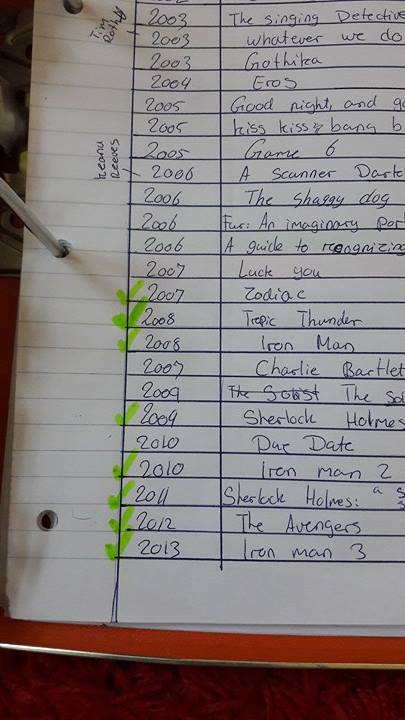 Tim Roth
2003 The singing Detective
2003 whatever we do
2003 Gothika
2004 Eros
2005 Good night, and
2005 kiss kiss bang b
2005 Game 6
Keanu Reeves
2006 A scanner Dark
2006 The shaggy dog
2006 Fur: An imaginary por
2006 A guide to recognizing
2007 Luck you
2007 Zodiac
2008 Tropic Thunder
2008 Iron Man
2007 Charlie Bartlet
2009 The Solist The So
2009 Sherlock Holmes
2010 Due Date
2010 Iron man 2
2011 Sherlock Holmes: a s
2012 The Avengers
2013 Iron man 3